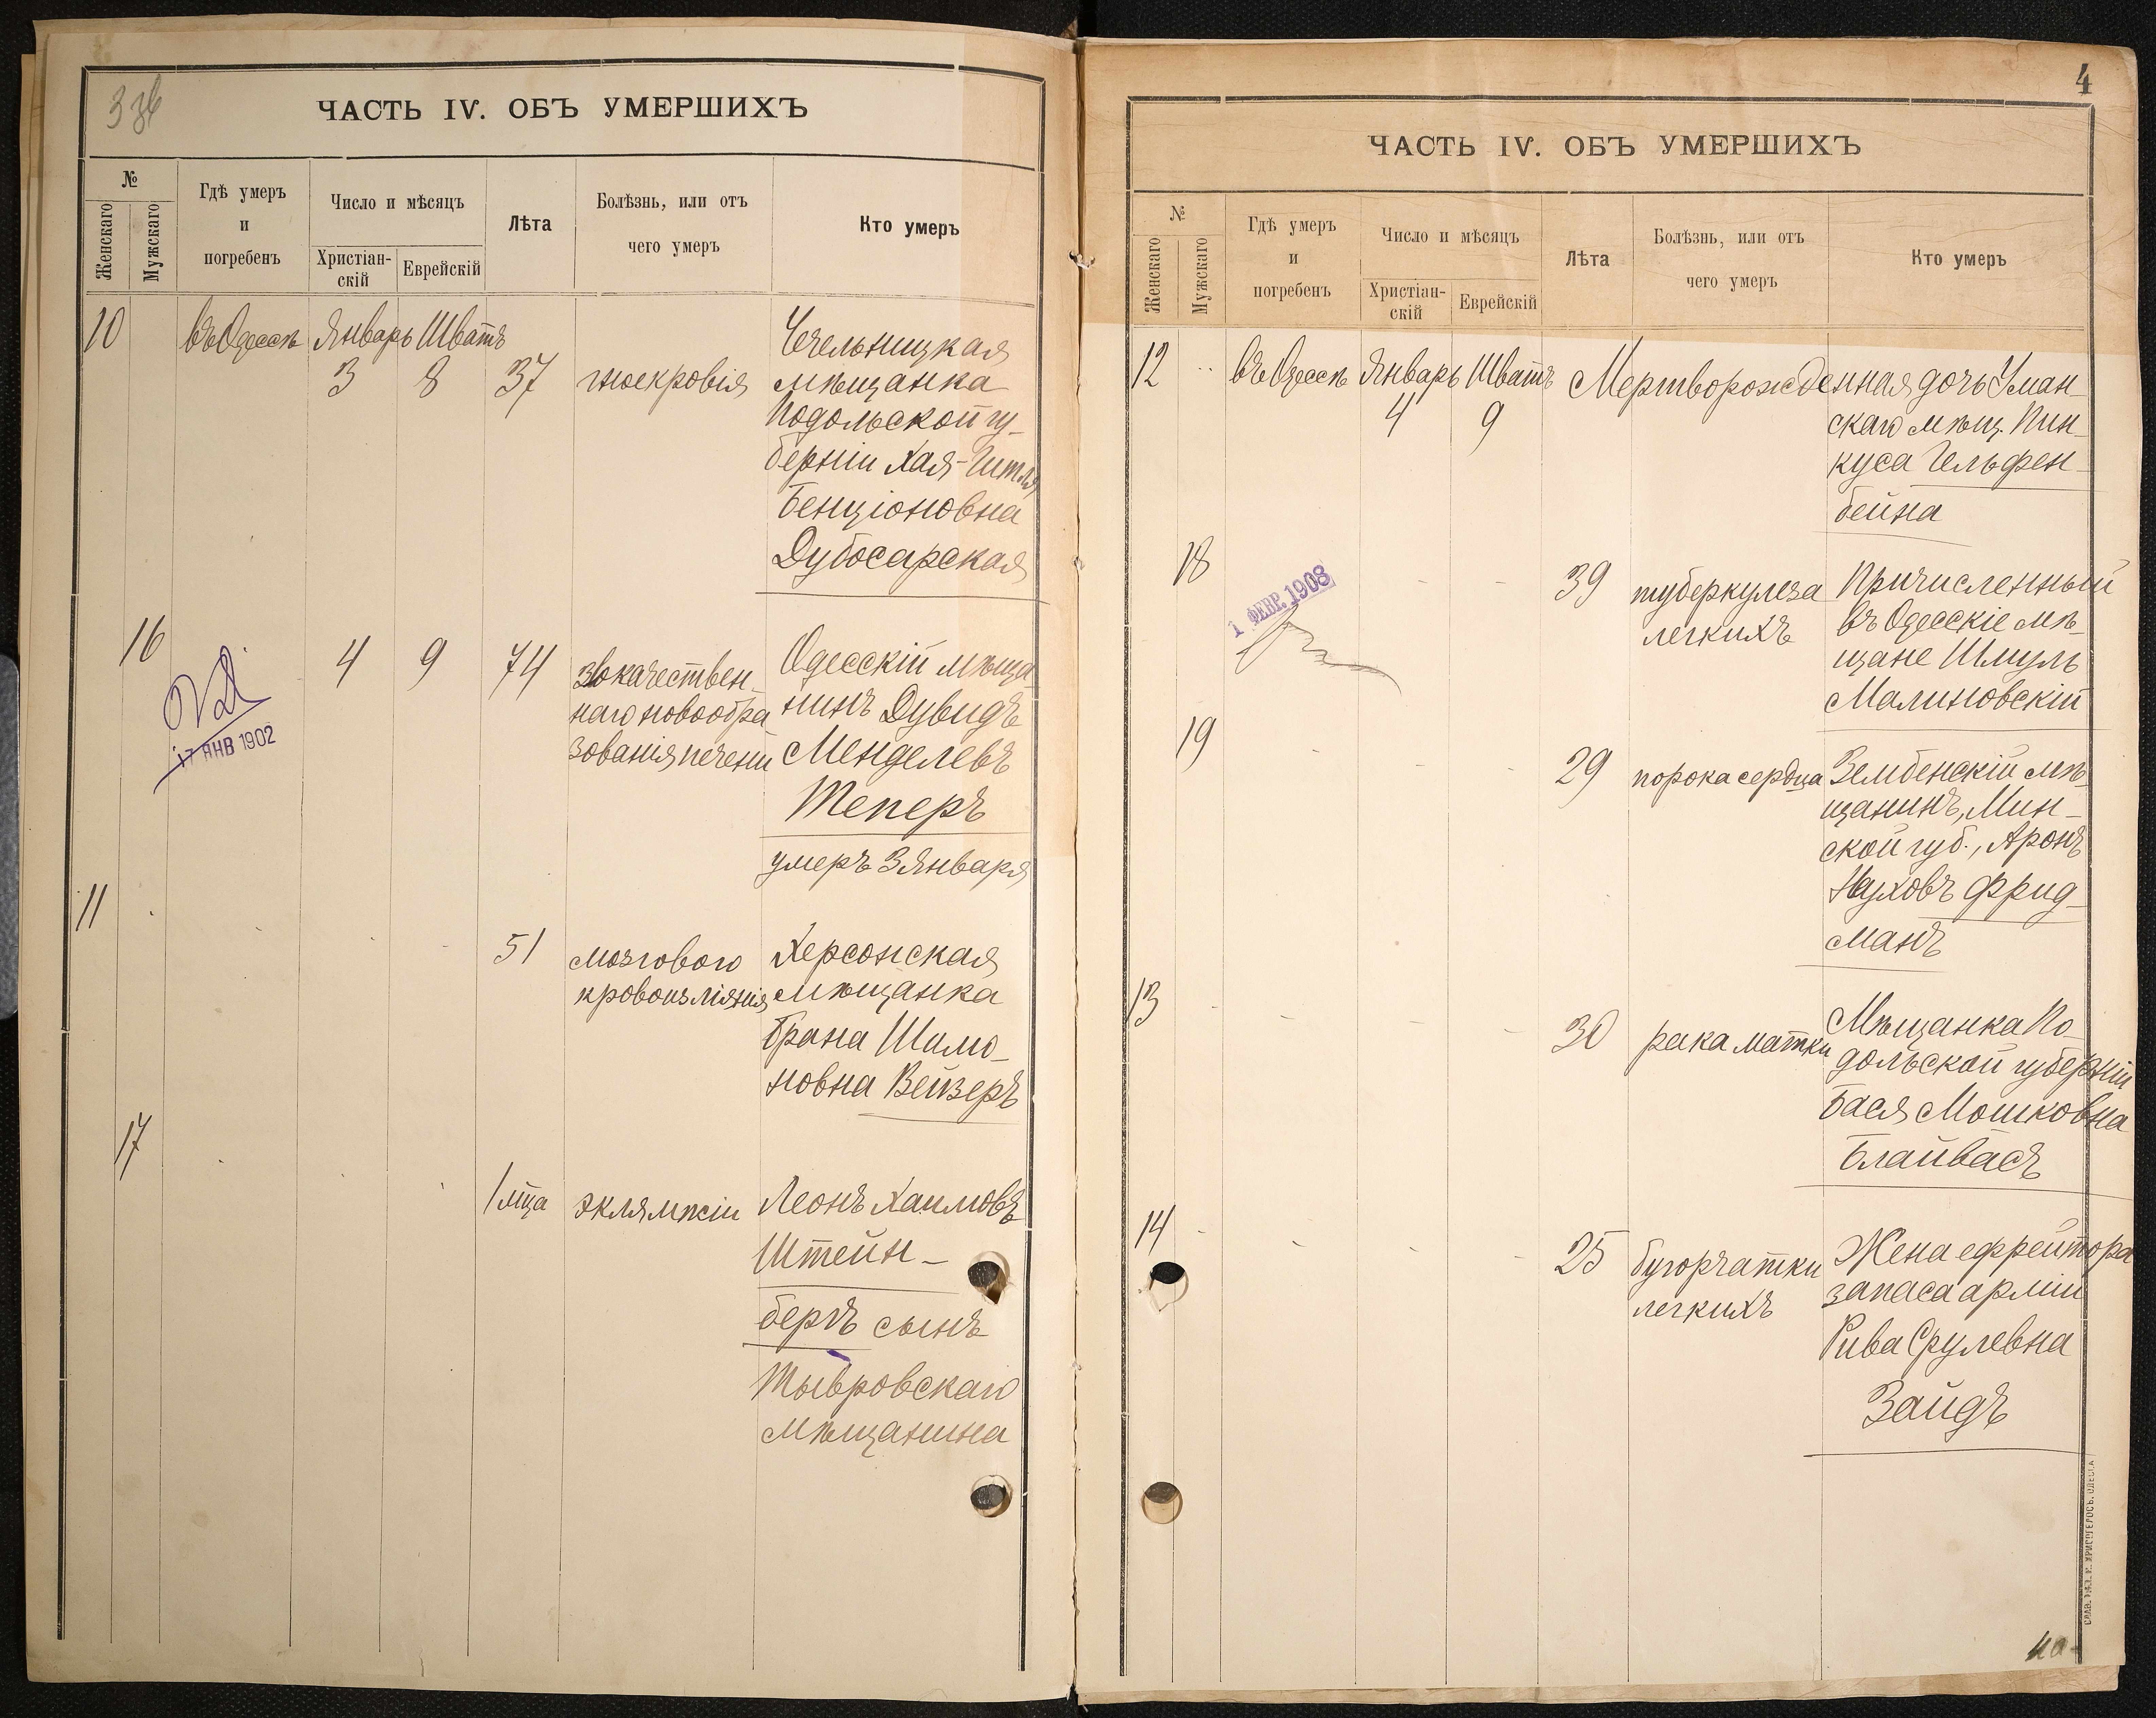 3 зв
ЧАСТЬ IV. ОБЪ УМЕРШИХЪ
№
Женскаго
Мужскаго
Гдѣ умеръ
и
погребенъ
Число и мѣсяцъ
Христіан-
скій
Еврейскій
Лѣта
Болѣзнь, или отъ
чего умеръ
Кто умеръ
10 въ Одессѣ Январь Шватъ
3 8 37 гноекровія
Чечельницкая
мѣщанка
Подольской гу-
берніи Хая-Гитля
Бенціоновна
Дубосарская
16 4 9 74 злокачествен-
наго новообра
зованія печени
Одесскій мѣща-
нинъ Дувидъ
Менделевъ
Теперъ
умеръ 3 Января
17 ЯНВ 1902
11 51 мозгового
кровоизліянія
Херсонская
мѣщанка
Брана Шимо-
новна Вейзеръ
17 1 мца эклямпсіи
Леонъ Хаимовъ
Штейн-
бергъ сынъ
Тывровскаго
мѣщанина
4
ЧАСТЬ IV. ОБЪ УМЕРШИХЪ
№
Женскаго
Мужскаго
Гдѣ умеръ
и
погребенъ
Число и мѣсяцъ
Христіан-
скій
Еврейскій
Лѣта
Болѣзнь, или отъ
чего умеръ
Кто умеръ
12 въ Одессѣ Январь Шватъ Мертворожденная дочь Уман-
4 9
скаго мѣщ. Пин-
куса Гельфен-
бейна
18 39 туберкулеза
легкихъ
Причисленный
въ Одесскіе мѣ-
щане Шмуль
Малиновскій
1 ФЕВР. 1908
19 29 порока сердца
Зембенскій мѣ-
щанинъ, Мин-
ской губ., Аронъ
Нуховъ Фрид-
манъ
13 30 рака матки
Мѣщанка По-
дольской губерніи
Бася Мошковна
Блайвасъ
14 25 бугорчатки
легкихъ
Жена ефрейтора
запаса арміи
Рива Срулевна
Зайдъ